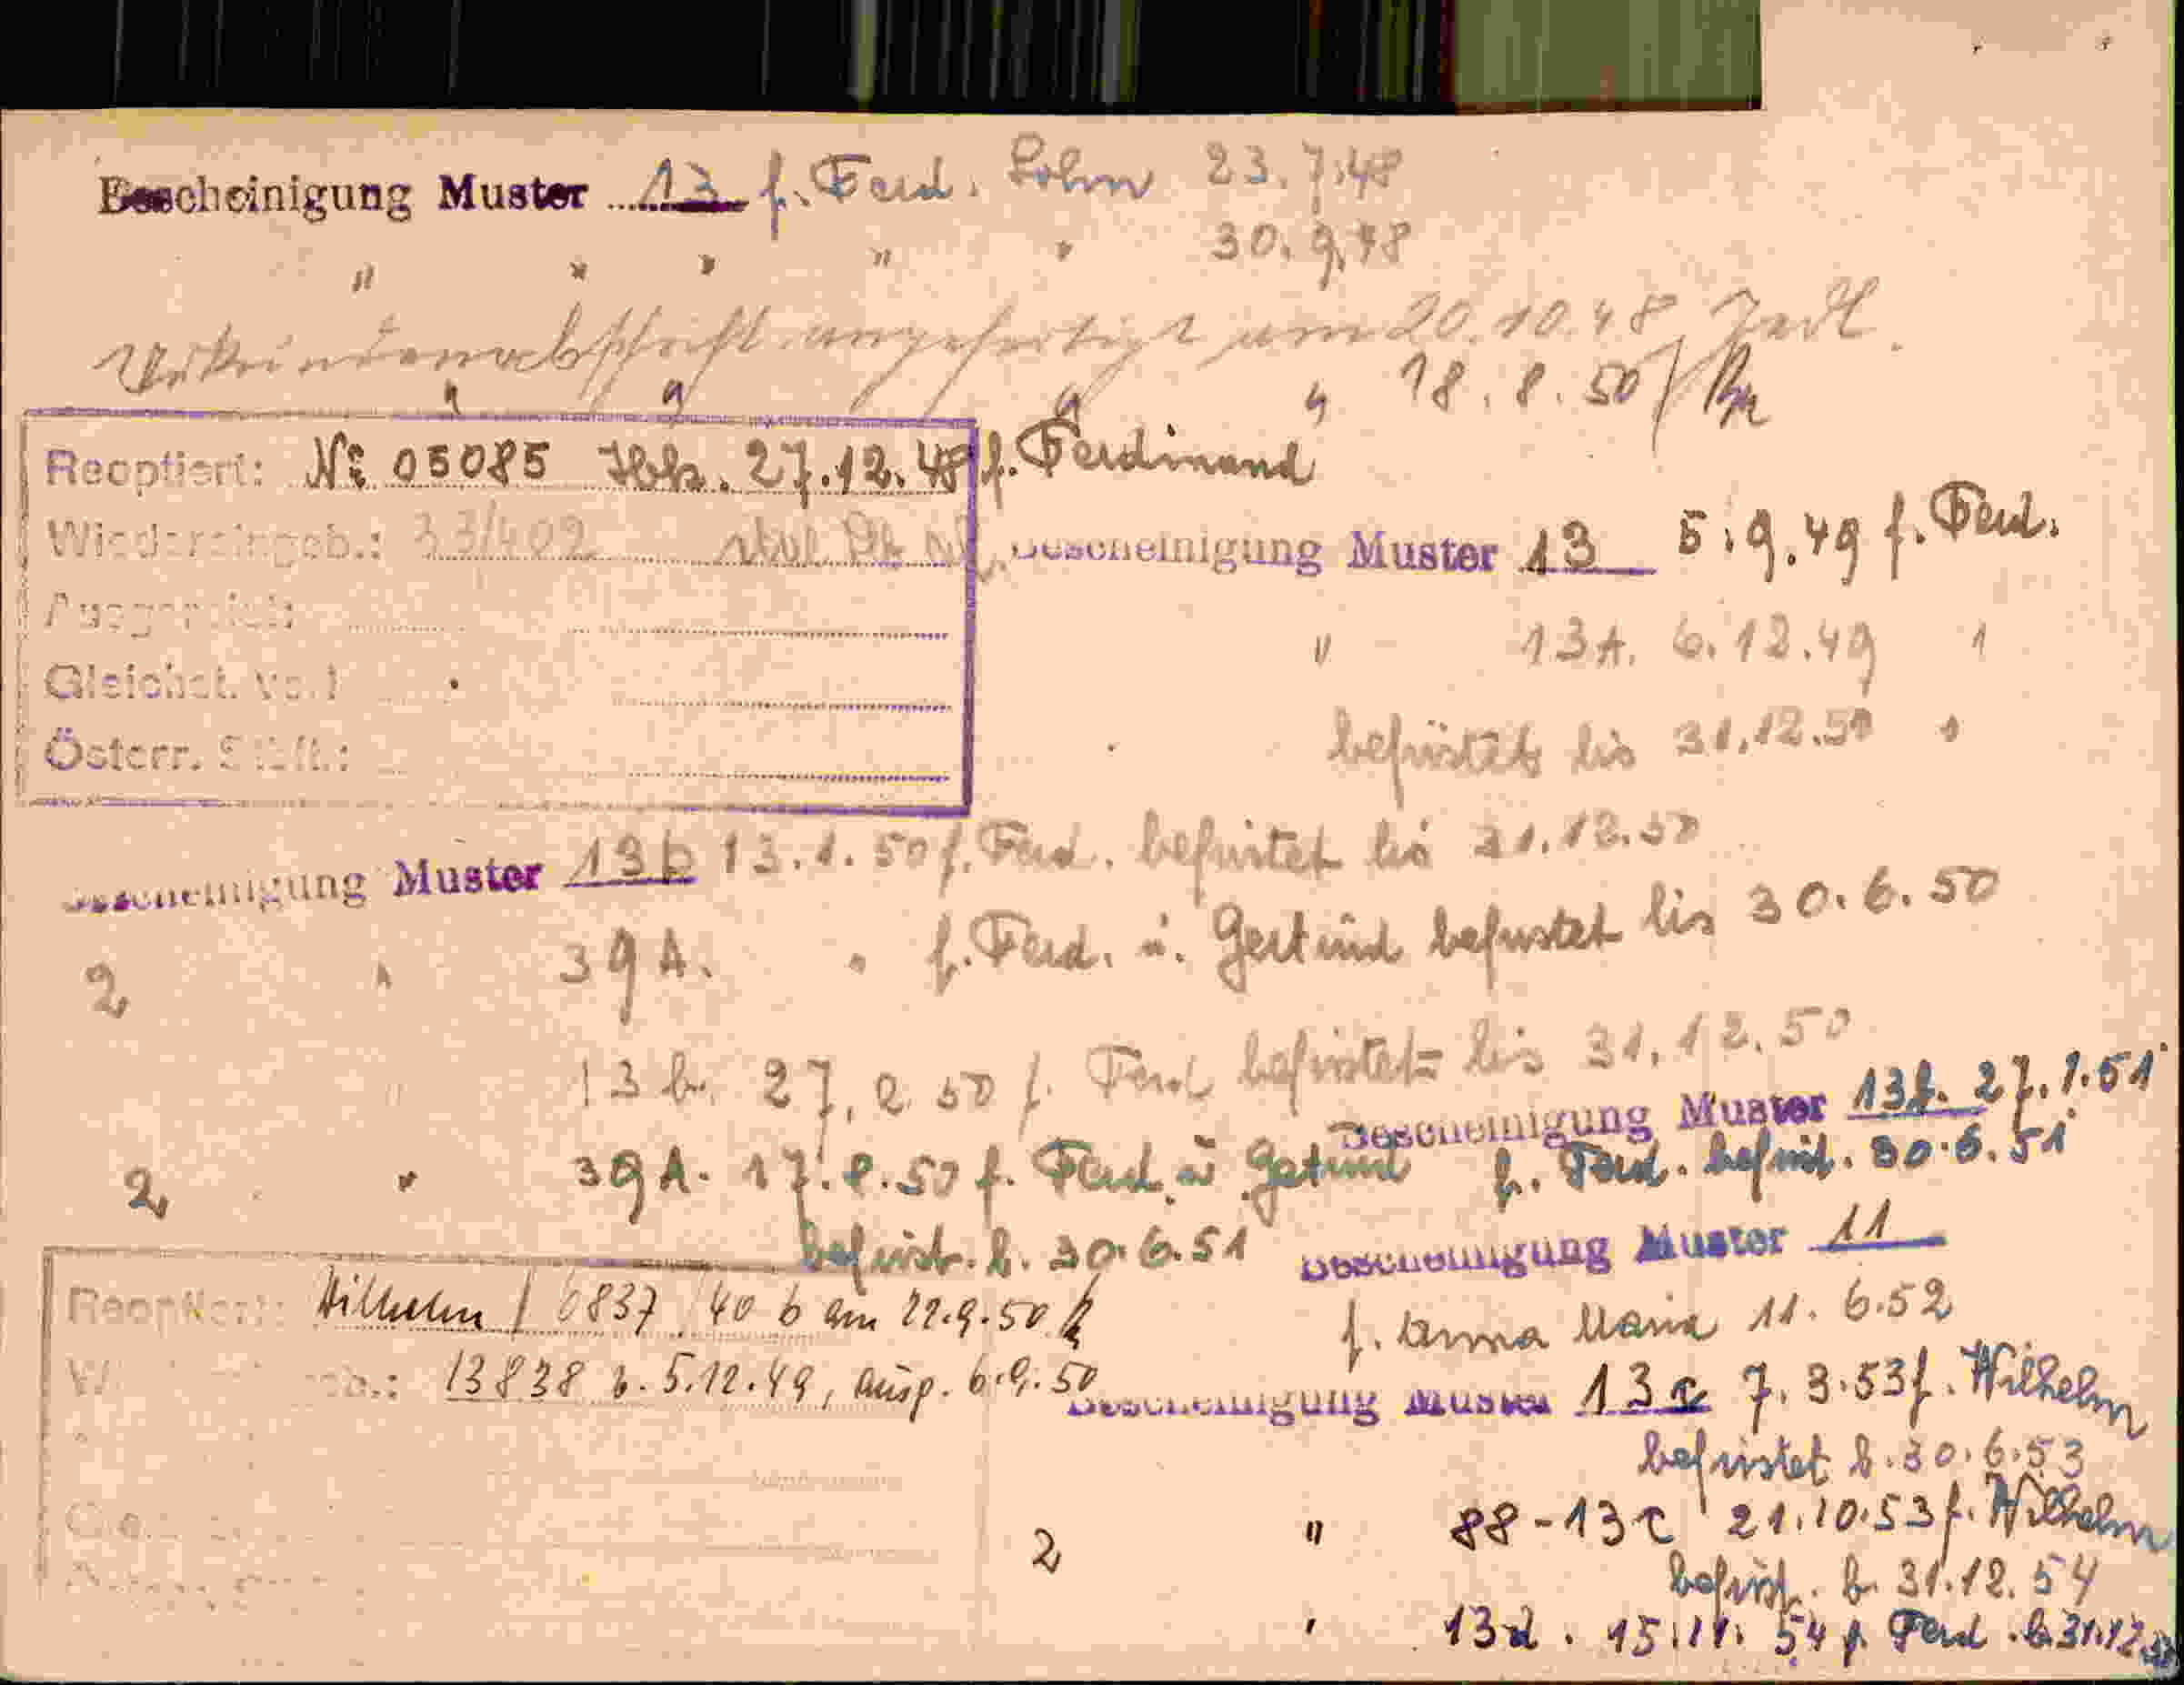 Bescheinigung Muster 13 f. Ferd. Sohn 23.7.48
" " " " " 30.9.48
Urkundenabschrift angefertigt am 20.10.48
" " " " 18.8.50
Reoptiert: Nr 05085 27.12.48 f. Ferdinand
Wiedereingeb.: 33/409
Bescheinigung Muster 13 5.9.49 f. Ferd.
Gleichst.
Österr.
" 13A. 6.12.49 "
befristet bis 31.12.50 "
Bescheinigung Muster 13b 13.1.50 f. Ferd. befristet bis 31.12.50
2 " 39A. " f. Ferd. u. Gertrud befristet bis 30.6.50
" 13b. 27.2.50 f. Ferd befristet bis 31.12.50
Bescheinigung Muster 13f. 27.1.51
f. Ferd. befrist. 30.6.51
2 " 39A. 17.8.50 f. Ferd. u. Gertrud
befrist. b. 30.6.51
Bescheinigung Muster 11
f. Anna Maria 11.6.52
Reoptiert: Wilhelm / 6837 40 b am 22.9.50
13838 v. 5.12.49, ausg. 6.9.50
Bescheinigung Muster 13c 7.3.53 f. Wilhelm
befristet b. 30.6.53
2 " 88-13c 21.10.53 f. Wilhelm
befrist. b. 31.12.54
" 13d. 15.11.54 f. Ferd. b. 31.12.